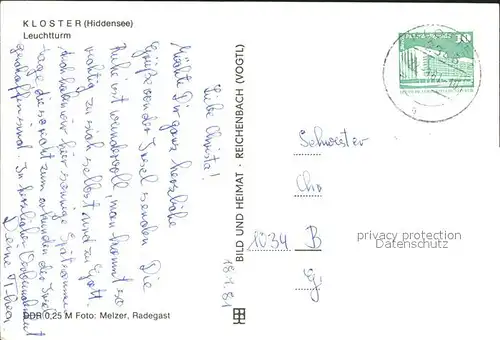 KLOSTER (Hiddensee)
Leuchtturm
Liebe Christa!
Möchte Dir ganz herzliche
Grüße von der Insel senden. Die
Ruhe ist wundervoll, man kommt so
richtig zu sich selbst und zu Gott.
haben wir hier sonnige
Tage die so recht zum der Insel
geschaffen sind. In herzlicher Verbundenheit
Deine
18.1.81
BILD UND HEIMAT · REICHENBACH (VOGTL)
DDR 0,25 M Foto: Melzer, Radegast
10
Schwester
Ch
1034 B
privacy protection
Datenschutz